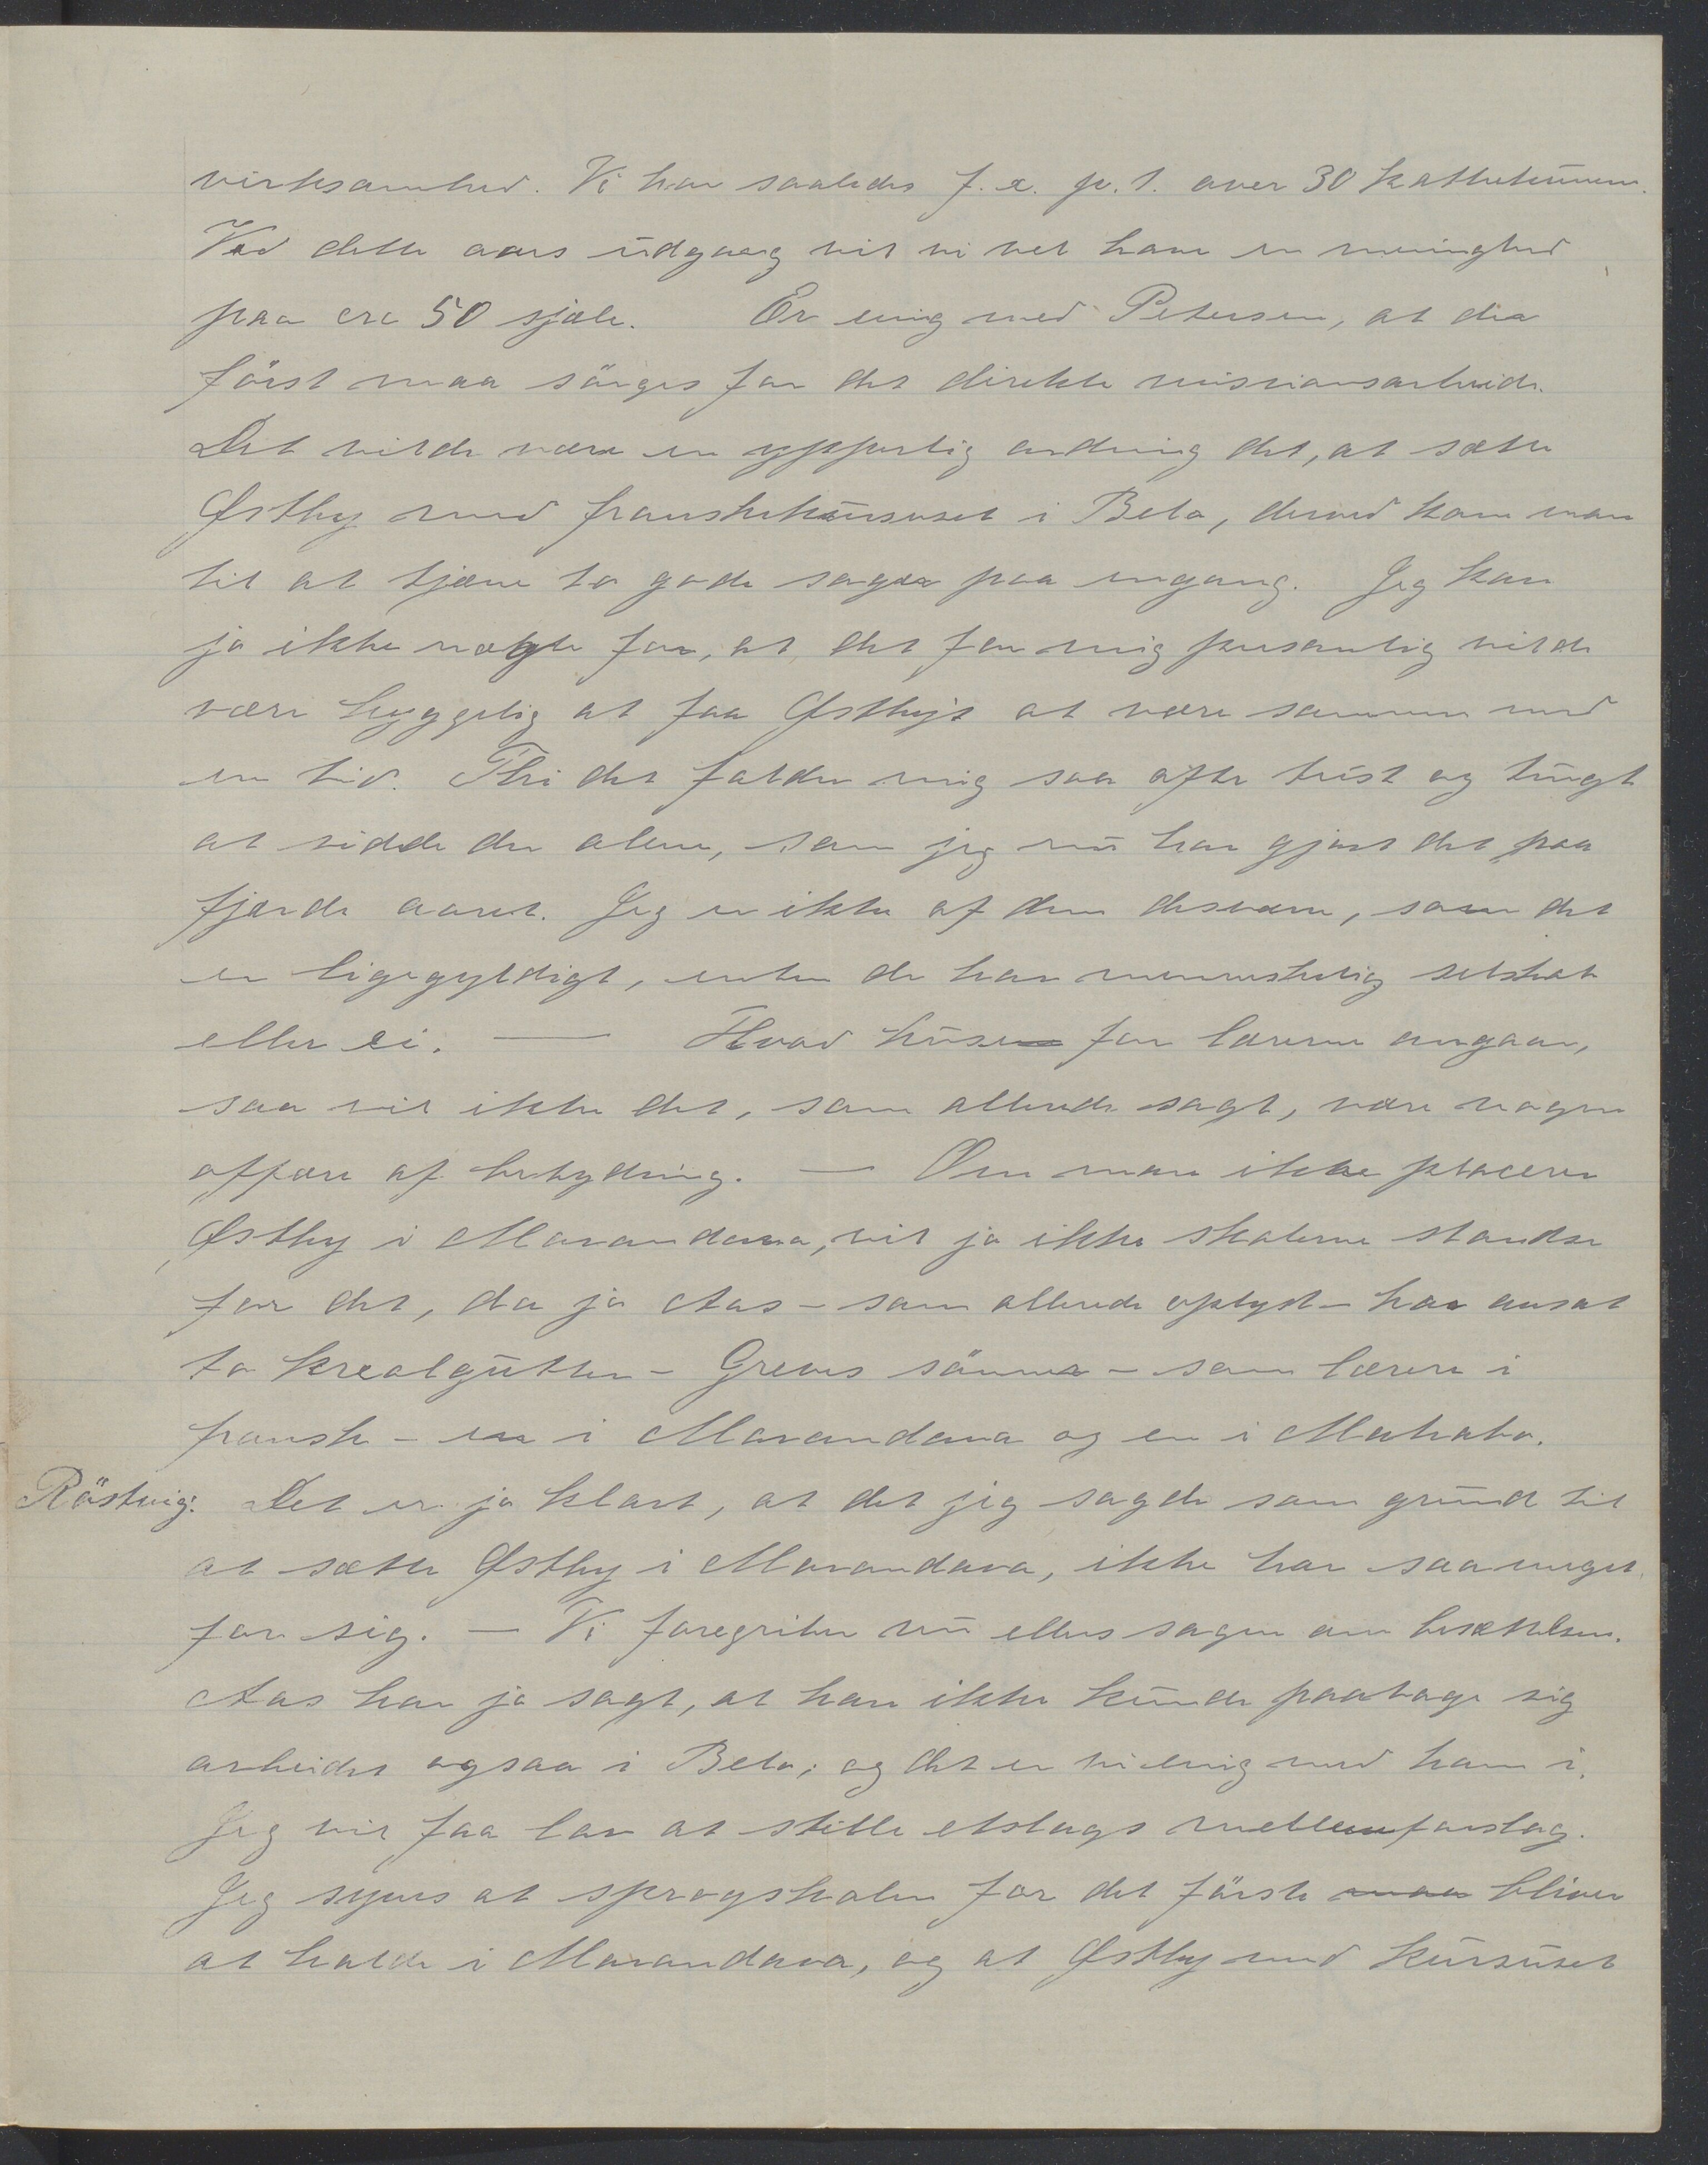 virksamhed. Vi har saaledes f. x. p. t. over 30 kathekumen.
Ved dette aars udgang vil vi vel have en menighed
paa cra 50 sjæle. Er enig med Petersen, at der
först maa sörges for det direkte missionsarbeide.
Det vilde være en ypperlig ordning det, at sætte
Østby med franskkursuset i Belo, derved kom man
til at tjene to gode sager paa engang. Jeg kan
jo ikke nægte for, at det for mig personlig vilde
være hyggelig at faa Østbys at være sammen med
en tid. Thi det falder mig saa ofte trist og tungt
at sidde der alene, som jeg nu har gjort det paa
fjerde aaret. Jeg er ikke af dem desværre, som det
er ligegyldigt, enten de har menneskelig selskab
eller ei. — Hvad huse for lærerne angaar,
saa vil ikke det, som allerede sagt, være nogen
affære af betydning. — Om man ikke placerer
Østby i Morondava, vil jo ikke skolerne standse
for det, da jo Aas – som allerede oplyst – har ansat
to kreolgutter – Greves sönner – som lærere i
fransk – en i Morondava og en i Mahabo.
Röstvig: Det er jo klart, at det jeg sagde som grund til
at sætte Østby i Morondava, ikke har saa meget
for sig. — Vi foregriber nu ellers sagen om besættelsen.
Aas har jo sagt, at han ikke kunde paatage sig
arbeidet ogsaa i Belo; og det er vi enig med ham i.
Jeg vil faa lov at stille etslags mellemforslag.
Jeg synes at sprogskolen for det förste maa bliver
at holde i Morondava, og at Østby med kursuset